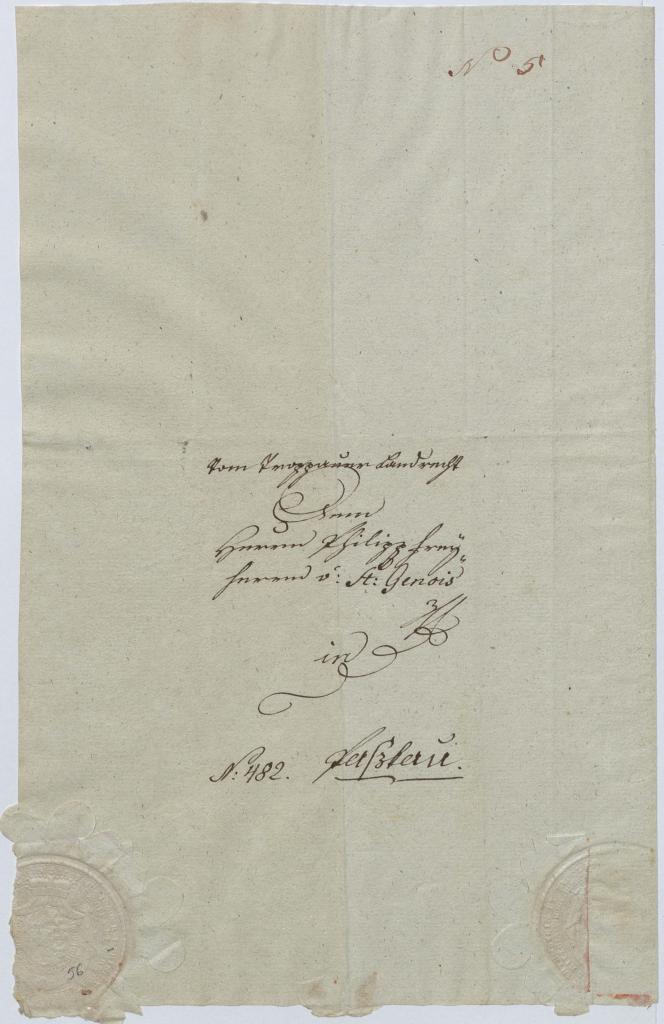 No 5
Vom Troppauer Landrecht
Dem
Herrn Philipp Frey„
herrn v: St: Genois
in
N: 482. Paskau.
56